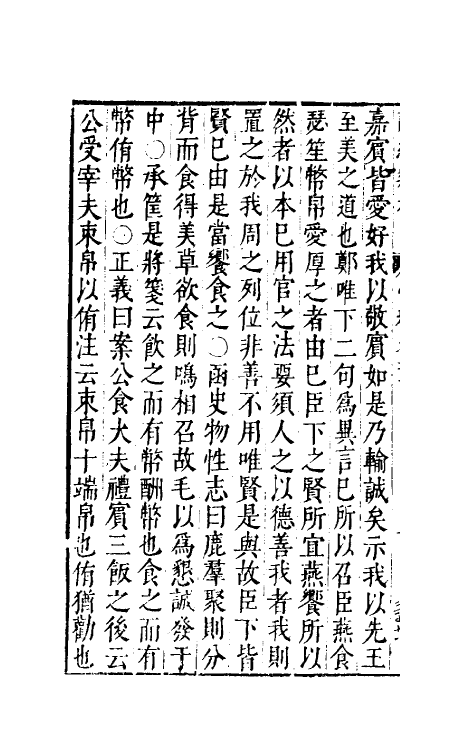 嘉賓皆愛好我以敬賓如是乃輸誠矣示我以先王
至美之道也鄭唯下二句為異言已所以召臣燕食
瑟笙幣帛愛厚之者由已臣下之賢所宜燕饗所以
然者以本已用官之法要須人之以德善我者我則
置之於我周之列位非善不用唯賢是與故臣下皆
賢已由是當饗食之○函史物性志曰鹿羣聚則分
背而食得美草欲食則鳴相召故毛以為懇誠發于
中○承筐是將箋云飲之而有幣酬幣也食之而有
幣侑幣也○正義曰案公食大夫禮賓三飯之後云
公受宰夫束帛以侑注云束帛十端帛也侑猶勸也